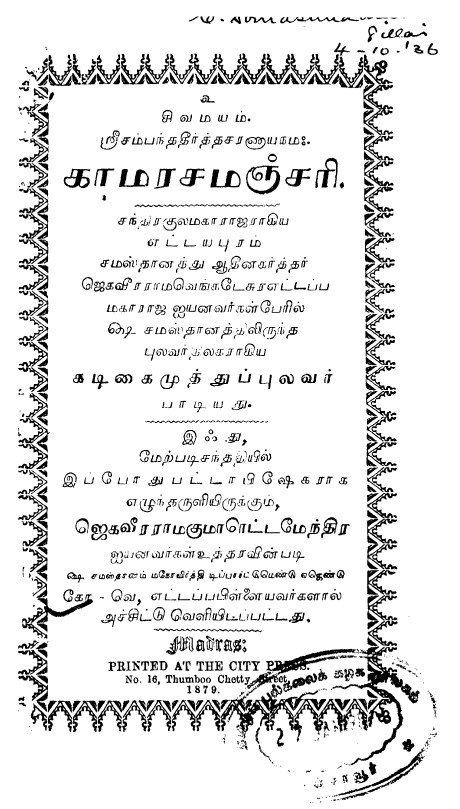 4-10-'36
உ
சிவமயம்.
ஸ்ரீசம்பந்ததீர்த்தசரணாயநமஃ.
காமரசமஞ்சரி.
சந்திரகுலமகாராஜராகிய
எட்டயபுரம்
சமஸ்தானத்து ஆதீனகர்த்தர்
ஜெகவீரராமவெங்கடேசுரஎட்டப்ப
மகாராஜ ஐயனவர்கள்பேரில்
௸ சமஸ்தானத்திலிருந்த
புலவர்திலகராகிய
கடிகைமுத்துப்புலவர்
பாடியது.
இஃது,
மேற்படிசந்ததியில்
இப்போதுபட்டாபிஷேகராக
எழுந்தருளியிருக்கும்,
ஜெகவீரராமகுமாரெட்டமேந்திர
ஐயனவர்கள்உத்தரவின்படி
௸ சமஸ்தானம்
கோ - வெ, எட்டப்பபிள்ளையவர்களால்
அச்சிட்டு வெளியிடப்பட்டது.
Madras:
PRINTED AT THE CITY PRESS.
No. 16, Thumboo Chetty Street
1879.